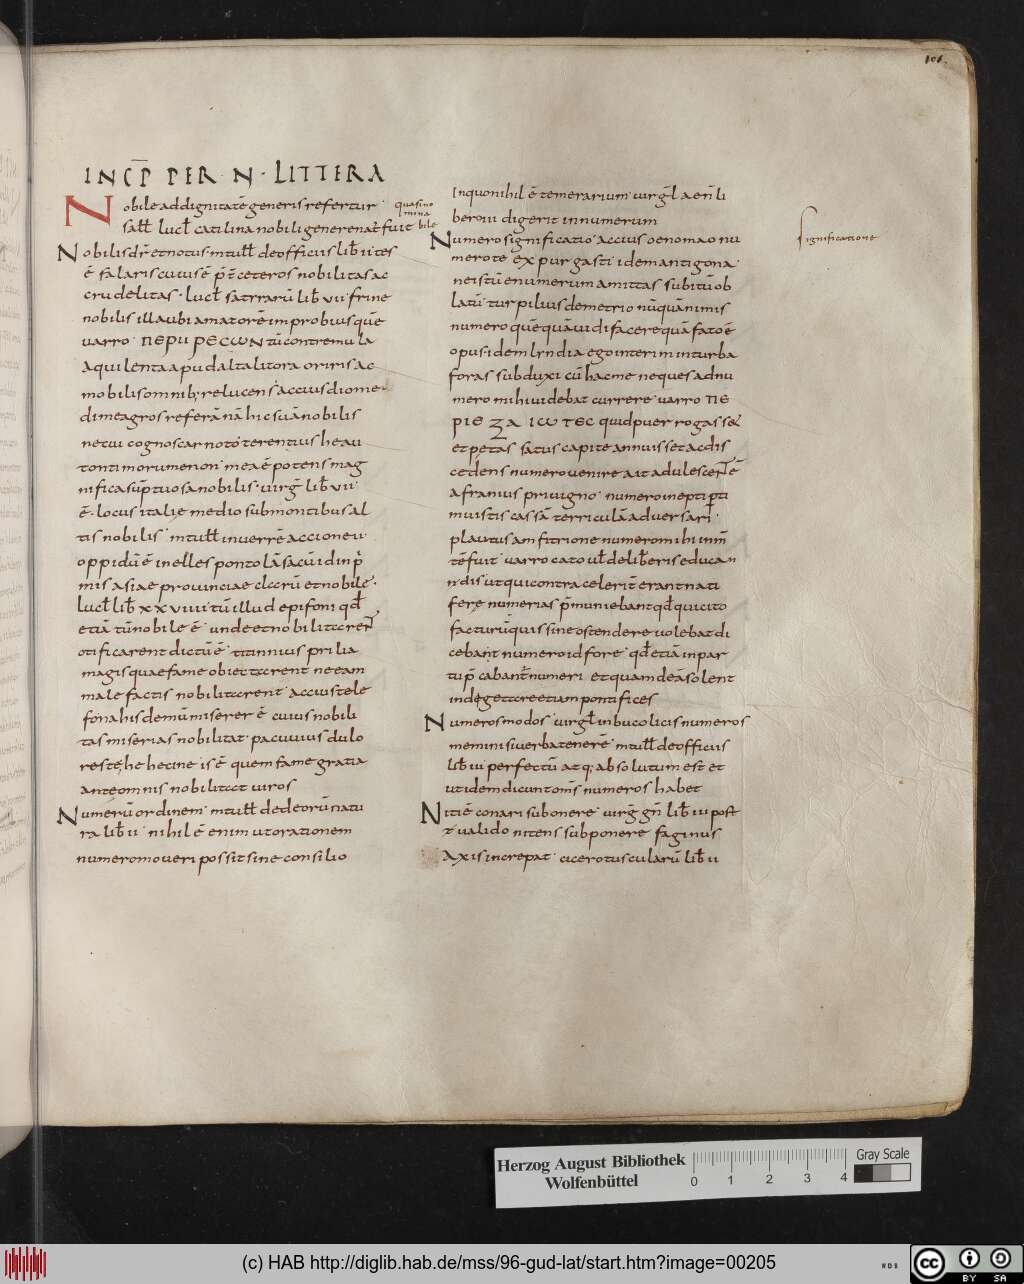 101.
INCP̄ PER N · LITTERA
Nobile ad dignitatē generis refertur·
quasi no
mina
bile
sall̄ lucl̄ catilina nobili genere nat; fuit
Nobilis dr̄ et notus· m tull̄ de officiis lib̄ ii tes
ē falaris cuius ē p̄ t̄ ceteros nobilitas ac
crudelitas· lucl̄ satrrarū lib̄ vii· frine
nobilis illa ubi amatorē improbius quē
varro· ΠΕΡΙΙ ΡΕCΩΝ tū contremula
aquilenta apud alta litora oriris ac
mobilis omnib; relucens accius diome
dime agros referā nā hic suā nobilis
necui cognoscar noto· terentius heau
tontimorumenon· mea ē potens mag
nifica sūptuosa nobilis· virḡ lib̄ vii·
ē· locus italie medio sub montibus al
tis nobilis· m tull̄ in verrē accione ii
oppidū ē in ellesponto lāsacū idin p̄
mis asiae provinciae clccrū et nobile·
lucl̄ lib̄ xxviiii tū illud epifoni qd̄
etiā tū nobile ē· unde et nobilitccrent
otificarent dictū ē· titinnius prilia
magis quae fame obiectccrent ne eam
male factis nobilitccrent· accius tele
fo na his demū miserer ē cuius nobili
tas miserias nobilitat· pacuvius dulo
reste; he hecine is ē quem fame gratia
ante omnis nobilitcct viros
Numerū ordinem· m tull̄ de deorū natu
ra lib̄ ii· nihil ē enim ut orationem
numero moveri possit sine consilio
In quo nihil ē temerarium· virḡl aen̄ li
bero iii digerit in numerum
Numero significatio· accius oenomao nu
significatione
mero te expurgasti· idem antigona·
ne istū enumerum amittas subitū ob
latū· turpilius demetrio nūquā nimis
numero quē quā vidi facere quā facto ē
opus· idem lyndia ego interim in turba
foras subduxi cū hac me neque s ad nu
mero mihi videbat currere· varro ΠΕ
ΡΙΕ ΖΑ ΙΩ ΤΕC quid puer rogas sed
et petas satus capite annuis set ac dis
cedens numero venire ait adulescent̄ ē
afranius privigno· numero inepti pti
muistis cassā terriculā adversari·
plautus amfitrione numero mihi in m̄
tē fuit· varro cato ul̄ de lib̄eris educan
n dis ut qui contra celerit̄ erant nati
fere numerias p̄nuniebant qd̄ qui cito
facturū quis sine ostendere volebat di
cebant numero id fore· qd̄ etiā in par
tu p̄cabant̄ numeri· et quam deā solent
indegetccre etiam pontifices
Numeros modos· virgl̄ in bucolicis numeros
memini si verba tenerē· m tull̄ de officiis
lib̄ iii perfectū atq; absolutum est et
ut idem dicunt om̄s numeros habet
Nitiē conari sub onere· virḡ gn̄ lib̄ iii post
t̄ valido nitens sub ponere faginus
axis increpat· cicero tuscularū lib̄ ii
Herzog August Bibliothek
Wolfenbüttel
0 1 2 3 4
Gray Scale
(c) HAB http://diglib.hab.de/mss/96-gud-lat/start.htm?image=00205
WDB
cc BY SA